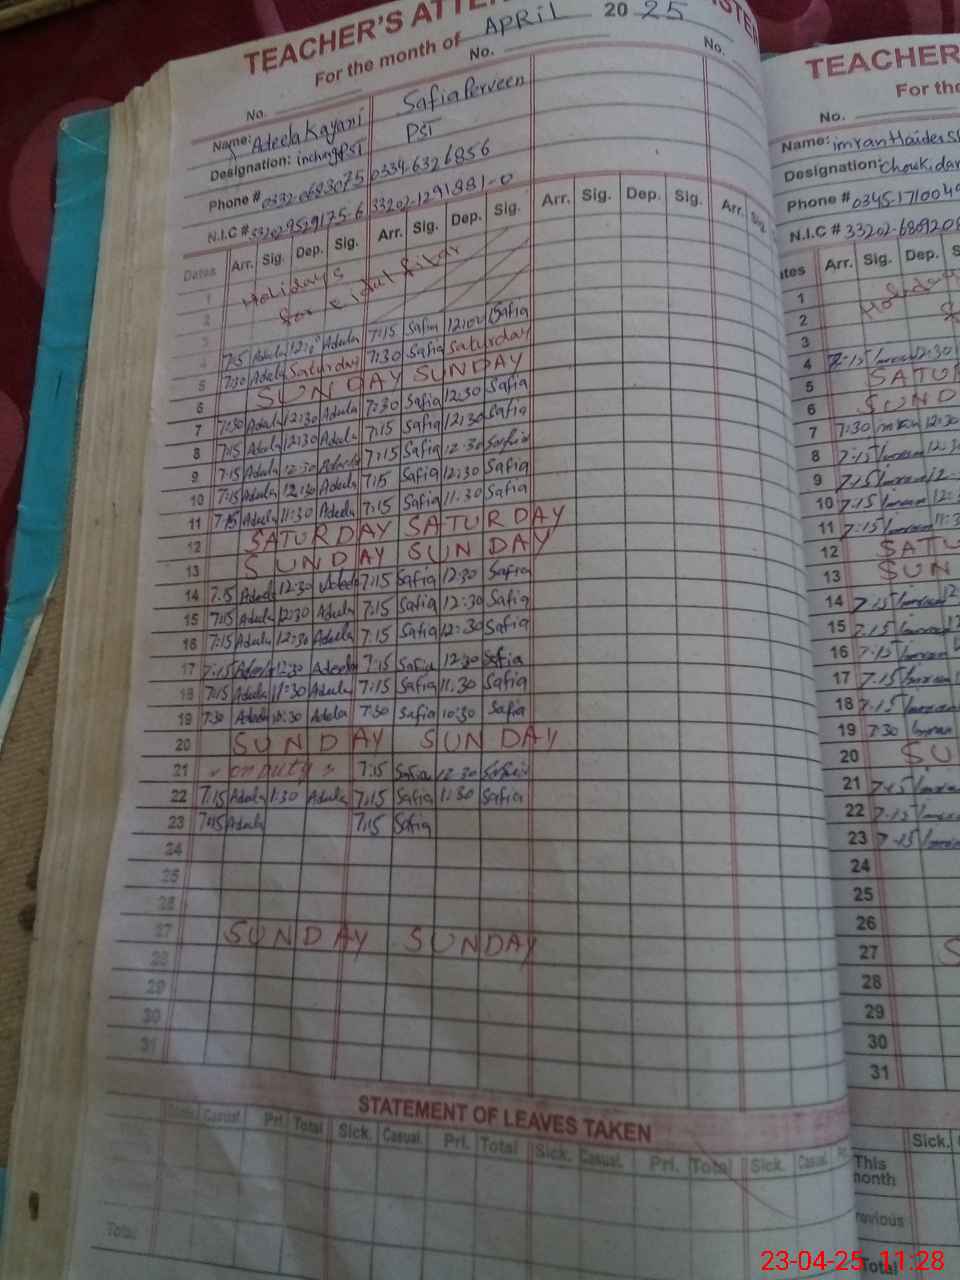 TEACHER'S ATTE
For the month of APRIL 2025 STE
No. No. No.
Name: Adeela Kayani Safia Perveen
Designation: incharg PST PST
Phone # 0332-0683075 0334-6326856
N.I.C # 33202-9529175-6 33202-1291881-0
Dates Arr. Sig. Dep. Sig. Arr. Sig. Dep. Sig. Arr. Sig. Dep. Sig. Arr. Sig.
1 Holidays
2 for eidul fitar
3
4 7:15 Adeela Adeela 7:15 Safia 12:00 Safia
5 7:30 Adeela Saturday 7:30 Safia Saturday
6 SUNDAY SUNDAY
7 7:30 Adeela 12:30 Adeela 7:30 Safia 12:30 Safia
8 7:15 Adeela 12:30 Adeela 7:15 Safia 12:30 Safia
9 7:15 Adeela 12:30 Adeela 7:15 Safia 12:30 Safia
10 7:15 Adeela 12:30 Adeela 7:15 Safia 12:30 Safia
11 7:15 Adeela 11:30 Adeela 7:15 Safia 11.30 Safia
12 SATURDAY SATURDAY
13 SUNDAY SUNDAY
14 7:15 Adeela 12:30 Adeela 7:15 Safia 12:30 Safia
15 7:15 Adeela 12:30 Adeela 7:15 Safia 12:30 Safia
16 7:15 Adeela 12:30 Adeela 7:15 Safia 12:30 Safia
17 7:15 Adeela 12:30 Adeela 7:15 Safia 12:30 Safia
18 7:15 Adeela 11:30 Adeela 7:15 Safia 11.30 Safia
19 7:30 Adeela 10:30 Adela 7:30 Safia 10:30 Safia
20 SUNDAY SUNDAY
21 on duty 7:15 Safia 12:30 Safia
22 7:15 Adeela 1:30 Adeela 7:15 Safia 1:30 Safia
23 7:15 Adeela 7:15 Safia
24
25
26
27 SUNDAY SUNDAY
28
29
30
31
STATEMENT OF LEAVES TAKEN
Sick. Casual. Pri. Total Sick. Casual. Pri. Total Sick. Casual. Pri. Total Sick. Casual. Pri.
Total
TEACHER
For the
No.
Name: imran Haider S
Designation: Chowkidar
Phone # 0345-1710049
N.I.C # 33202-689208
ates Arr. Sig. Dep. S
1
2
3
4 7:15 Imran 12:30
5 SATUR
6 SUND
7 7:30 imran 12:30
8 7:15 Imran 12:3
9 7:15 Imran 12
10 7:15 Imran 12:
11 7:15 Imran 11:3
12 SATU
13 SUN
14 7:15 Imran
15 7:15 Imran
16 7:15 Imran
17 7:15 Imran
18 7:15 Imran
19 7:30 Imran
20 SU
21 7:15 Imran
22 7:15 Imran
23 7:15 Imran
24
25
26
27 S
28
29
30
31
Sick.
This month
revious
Total
23-04-25 11:28